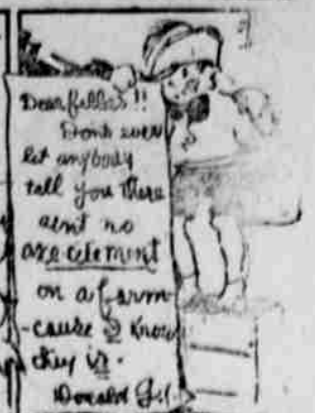 Dear fellas!!
Don't ever
let anybody
tell you there
aint no
axecitement
on a farm
-cause I know
they is.
Donald G.